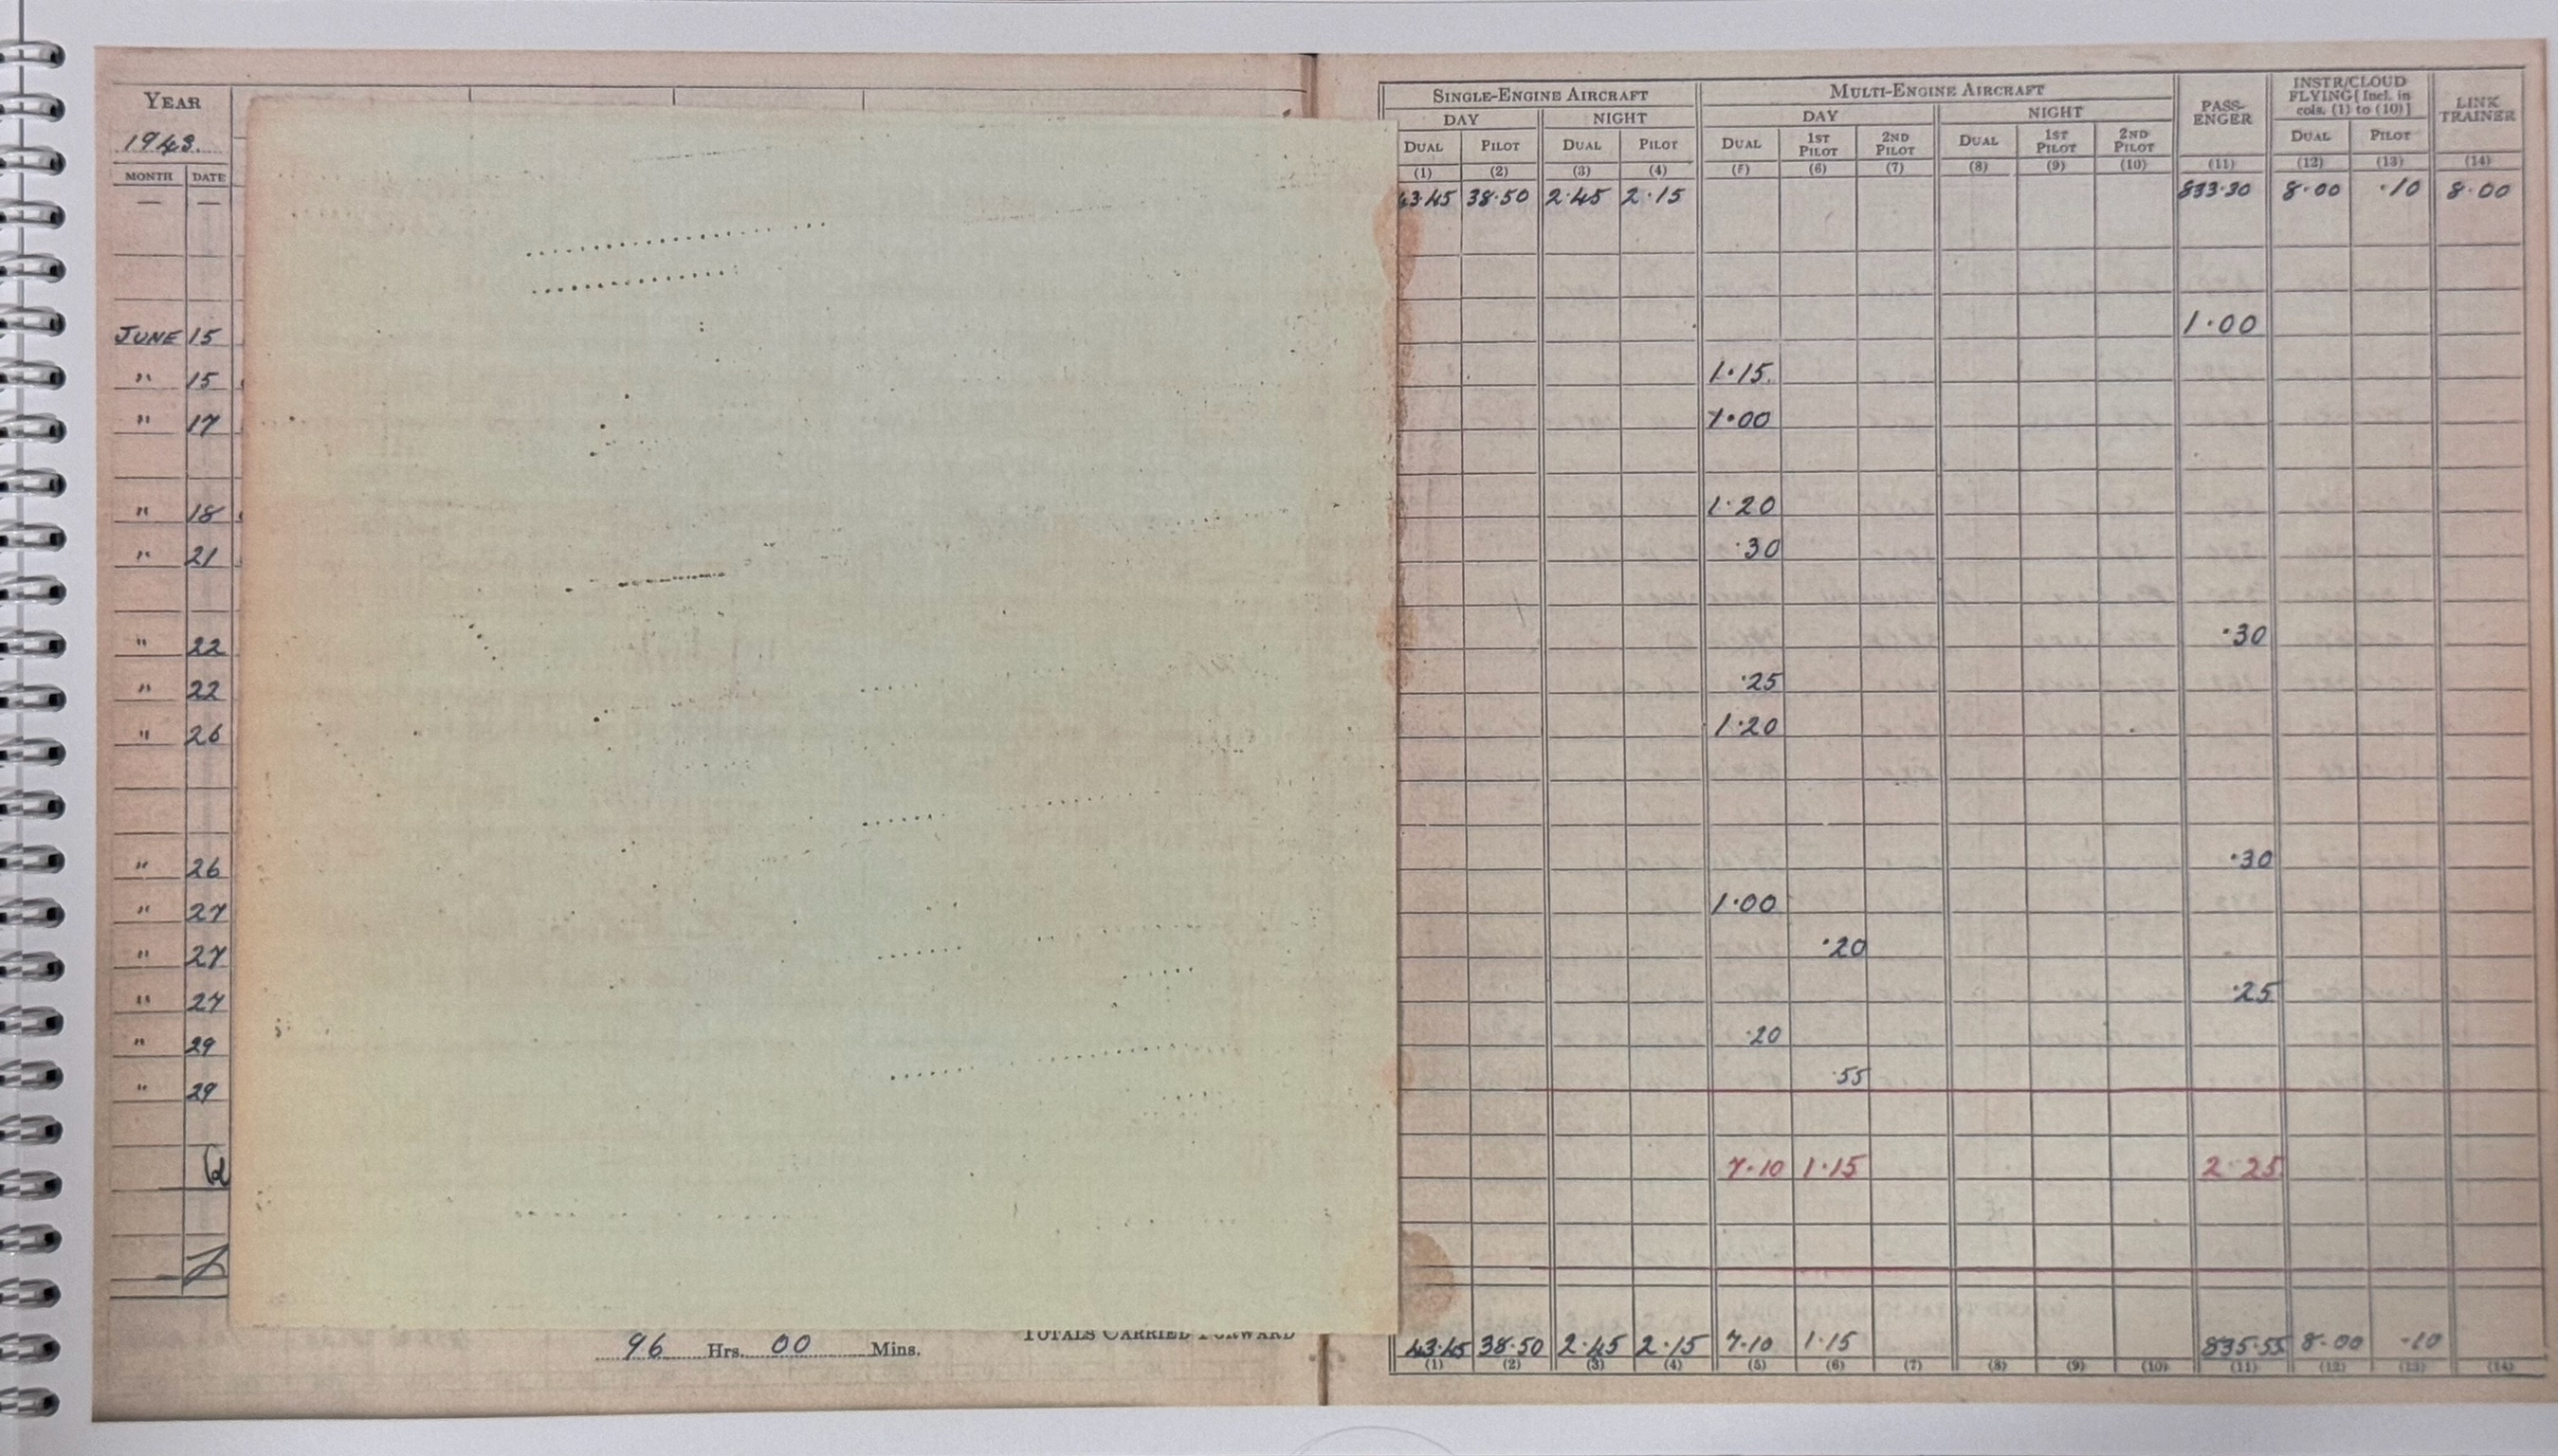 YEAR
1943.
MONTH DATE
SINGLE-ENGINE AIRCRAFT MULTI-ENGINE AIRCRAFT PASS-ENGER INSTR/CLOUD FLYING [Incl. in cols. (1) to (10)] LINK TRAINER
DAY NIGHT DAY NIGHT
DUAL PILOT DUAL PILOT DUAL 1ST PILOT 2ND PILOT DUAL 1ST PILOT 2ND PILOT DUAL PILOT
(1) (2) (3) (4) (5) (6) (7) (8) (9) (10) (11) (12) (13) (14)
— — 43·45 38·50 2·45 2·15 833·30 8·00 ·10 8·00
JUNE 15 1·00
" 15 1·15
" 17 1·00
" 18 1·20
" 21 ·30
" 22 ·30
" 22 ·25
" 26 1·20
" 26 ·30
" 27 1·00
" 27 ·20
" 27 ·25
" 29 ·20
" 29 ·55
7·10 1·15 2·25
96 Hrs. 00 Mins. TOTALS CARRIED FORWARD 43·45 38·50 2·45 2·15 7·10 1·15 835·55 8·00 ·10
(1) (2) (3) (4) (5) (6) (7) (8) (9) (10) (11) (12) (13) (14)